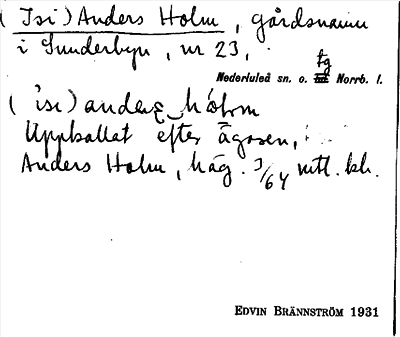 (Isi) Anders Holm, gårdsnamn
i Sunderbyn, nr 23,
tg
Nederluleå sn. o. Norrb. l.
(ˈisɩ) andeʂ hólm
Uppkallat efter ägaren,
Anders Holm, häg. 3/64 mtl. kh.
EDVIN BRÄNNSTRÖM 1931